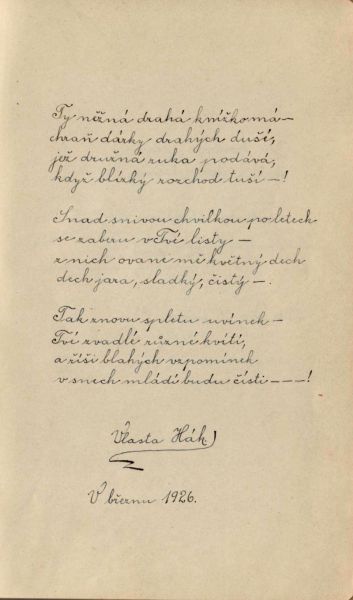 Ty něžná drahá knížko má –
chraň dárky drahých duší,
jež družná ruka podává,
když blízký rozchod tuší – !
Snad snivou chvilkou po letech
se zaberu v Tvé listy –
z nich ovane mě květný dech
dech jara, sladký, čistý –.
Tak znovu spletu uvínek –
Tvé zvadlé různé kvítí,
a říši blahých vzpomínek
v snech mládí budu čísti – – – !
Vlasta Hák
V březnu 1926.